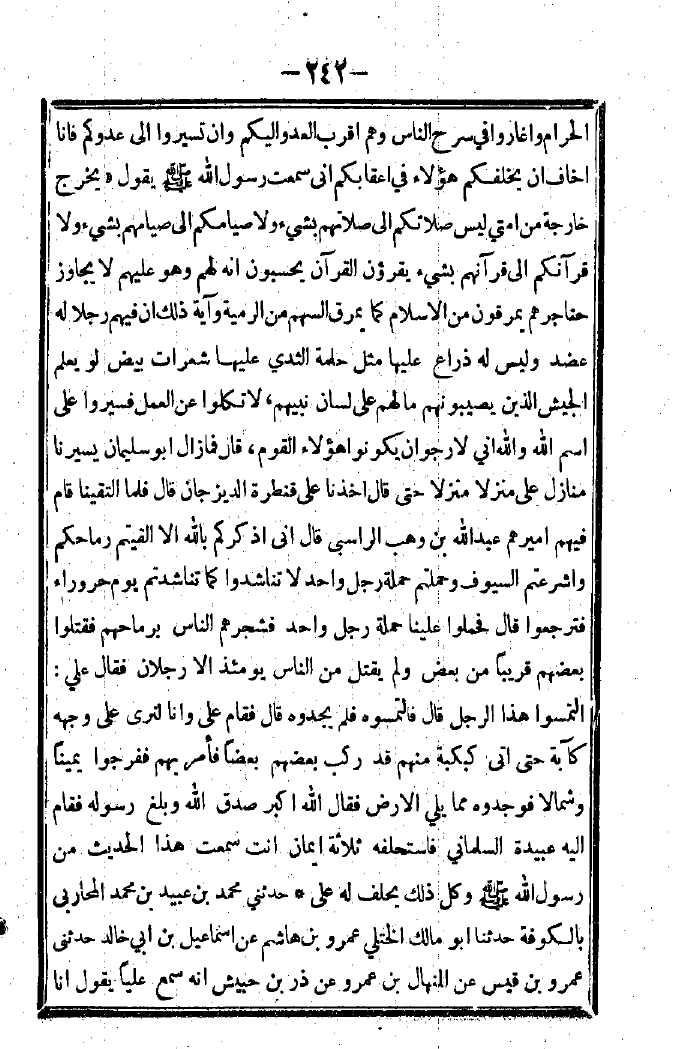 -٢٤٢-
الحرام واغاروا في سرح الناس وهم اقرب العدو اليكم وان تسيروا الى عدوكم فانا
اخاف ان يخلفكم هؤلاء في اعقابكم انى سمعت رسول الله ﷺ يقول « يخرج
خارجة من امتي ليس صلاتكم الى صلاتهم بشيء ولا صيامكم الى صيامهم بشيء ولا
قرآنكم الى قرآنهم بشيء يقرؤن القرآن يحسبون انه لهم وهو عليهم لا يجاوز
حناجرهم يمرقون من الاسلام كما يمرق السهم من الرمية وآية ذلك ان فيهم رجلا له
عضد وليس له ذراع عليها مثل حلمة الثدي عليها شعرات بيض لو يعلم
الجيش الذين يصيبونهم مالهم على لسان نبيهم، لا تكلوا عن العمل فسيروا على
اسم الله والله اني لارجو ان يكونوا هؤلاء القوم، قال فمازال ابو سليمان يسيرنا
منازل على منزلا منزلا حتى قال اخذنا على قنطرة الديزجان قال فلما التقينا قام
فيهم اميرهم عبدالله بن وهب الراسبى قال انى اذكركم بالله الا القيتم رماحكم
واشرعتم السيوف وحملتم حملة رجل واحد لا تناشدوا كما تناشدتم يوم حروراء
فترجعوا قال فحملوا علينا حملة رجل واحد فشجرهم الناس برماحهم فقتلوا
بعضهم قريبًا من بعض ولم يقتل من الناس يومئذ الا رجلان فقال علي :
التمسوا هذا الرجل قال فالتمسوه فلم يجدوه قال فقام على وانا لنرى على وجهه
كآبة حتى اتى كبكبة منهم قد ركب بعضهم بعضًا فأمر بهم ففرجوا يمينًا
وشمالا فوجدوه مما يلي الارض فقال الله اكبر صدق الله وبلغ رسوله فقام
اليه عبيدة السلماني فاستحلفه ثلاثة ايمان انت سمعت هذا الحديث من
رسول الله ﷺ وكل ذلك يحلف له على * حدثني محمد بن عبيد بن محمد المحاربى
بالكوفة حدثنا ابو مالك الخنلي عمرو بن هاشم عن اسماعيل بن ابي خالد حدثنى
عمرو بن قيس عن المنهال بن عمرو عن ذر بن حبيش انه سمع عليًا يقول انا